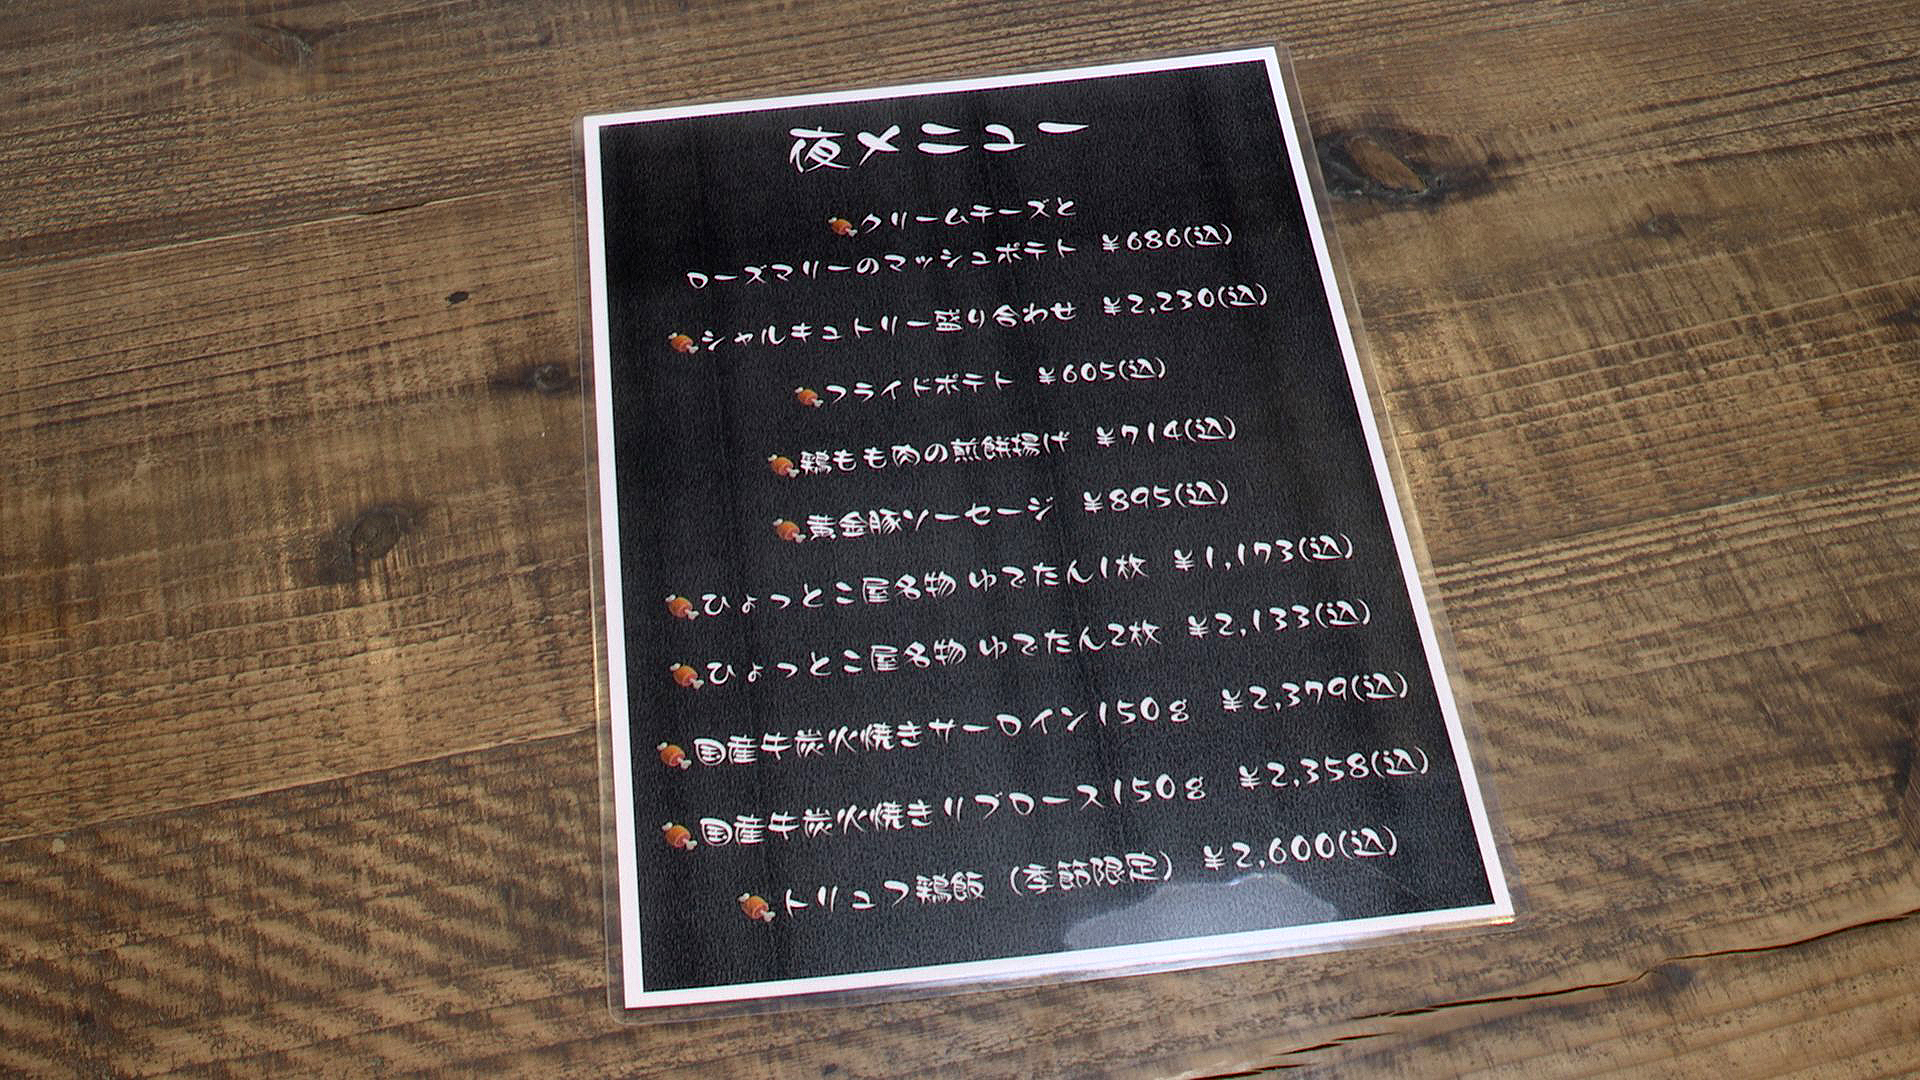 夜メニュー
クリームチーズと
ローズマリーのマッシュポテト ¥686(込)
シャルキュトリー盛り合わせ ¥2,230(込)
フライドポテト ¥605(込)
鶏もも肉の煎餅揚げ ¥714(込)
黄金豚ソーセージ ¥895(込)
ひょっとこ屋名物 ゆでたん1枚 ¥1,173(込)
ひょっとこ屋名物 ゆでたん2枚 ¥2,133(込)
国産牛炭火焼きサーロイン150g ¥2,379(込)
国産牛炭火焼きリブロース150g ¥2,358(込)
トリュフ鶏飯 (季節限定) ¥2,600(込)